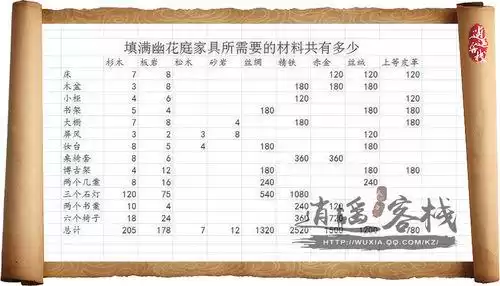 逍遥客栈
填满幽花庭家具所需要的材料共有多少
杉木 板岩 松木 砂岩 丝绸 精铁 赤金 丝绒 上等皮革
床 7 8 120 120 120
木盆 3 8 180 180 180
小柜 4 6 120 120
书架 5 4 180 180 180
大橱 7 8 4 180 180
屏风 3 2 3 8 120
妆台 8 5 4 180 180
桌椅套 8 6 360 360
博古架 4 12 180 180 180
两个几案 8 16 240 240
三个石灯 120 75 540 1080
两个书案 10 4 240 120
六个椅子 18 24 360 720
总计 205 178 7 12 1320 2520 1500 1200 780
逍遥客栈
HTTP://WUXIA.QQ.COM/KZ/